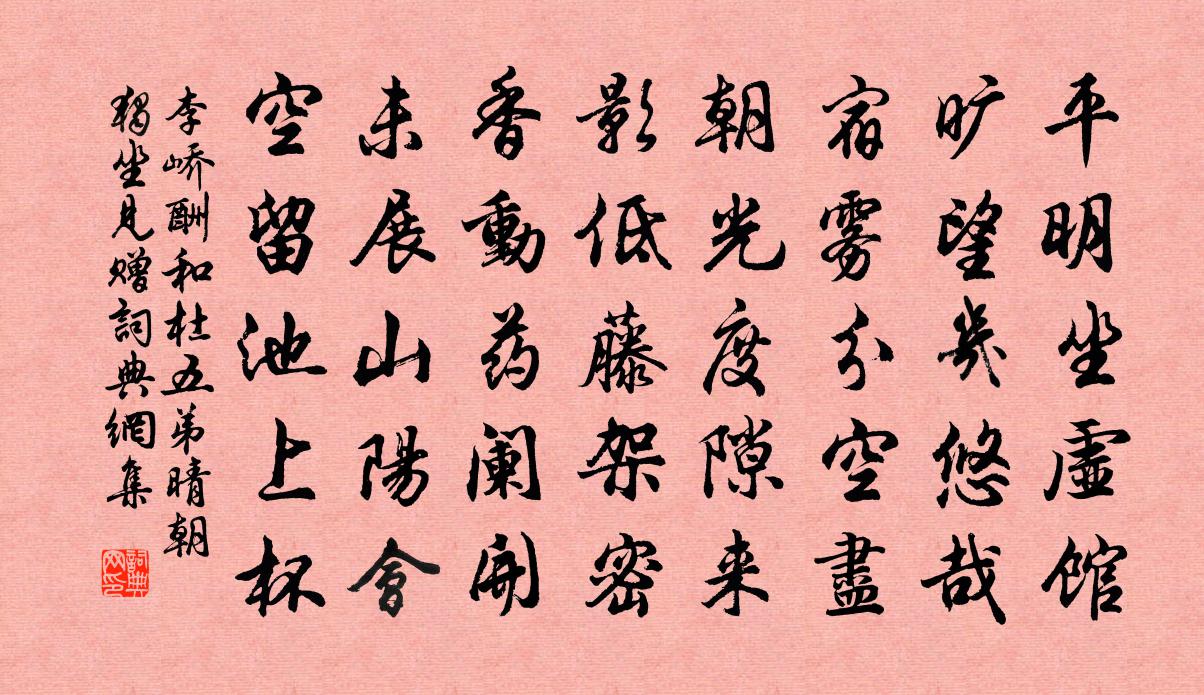 平明坐虛馆
旷望幾悠哉
宿雾分空盡
朝光度隙来
影低藤架密
香動药阑開
未展山陽會
空留池上杯
李嶠酬和杜五弟晴朝
獨坐見赠詞典網集
詞典网印